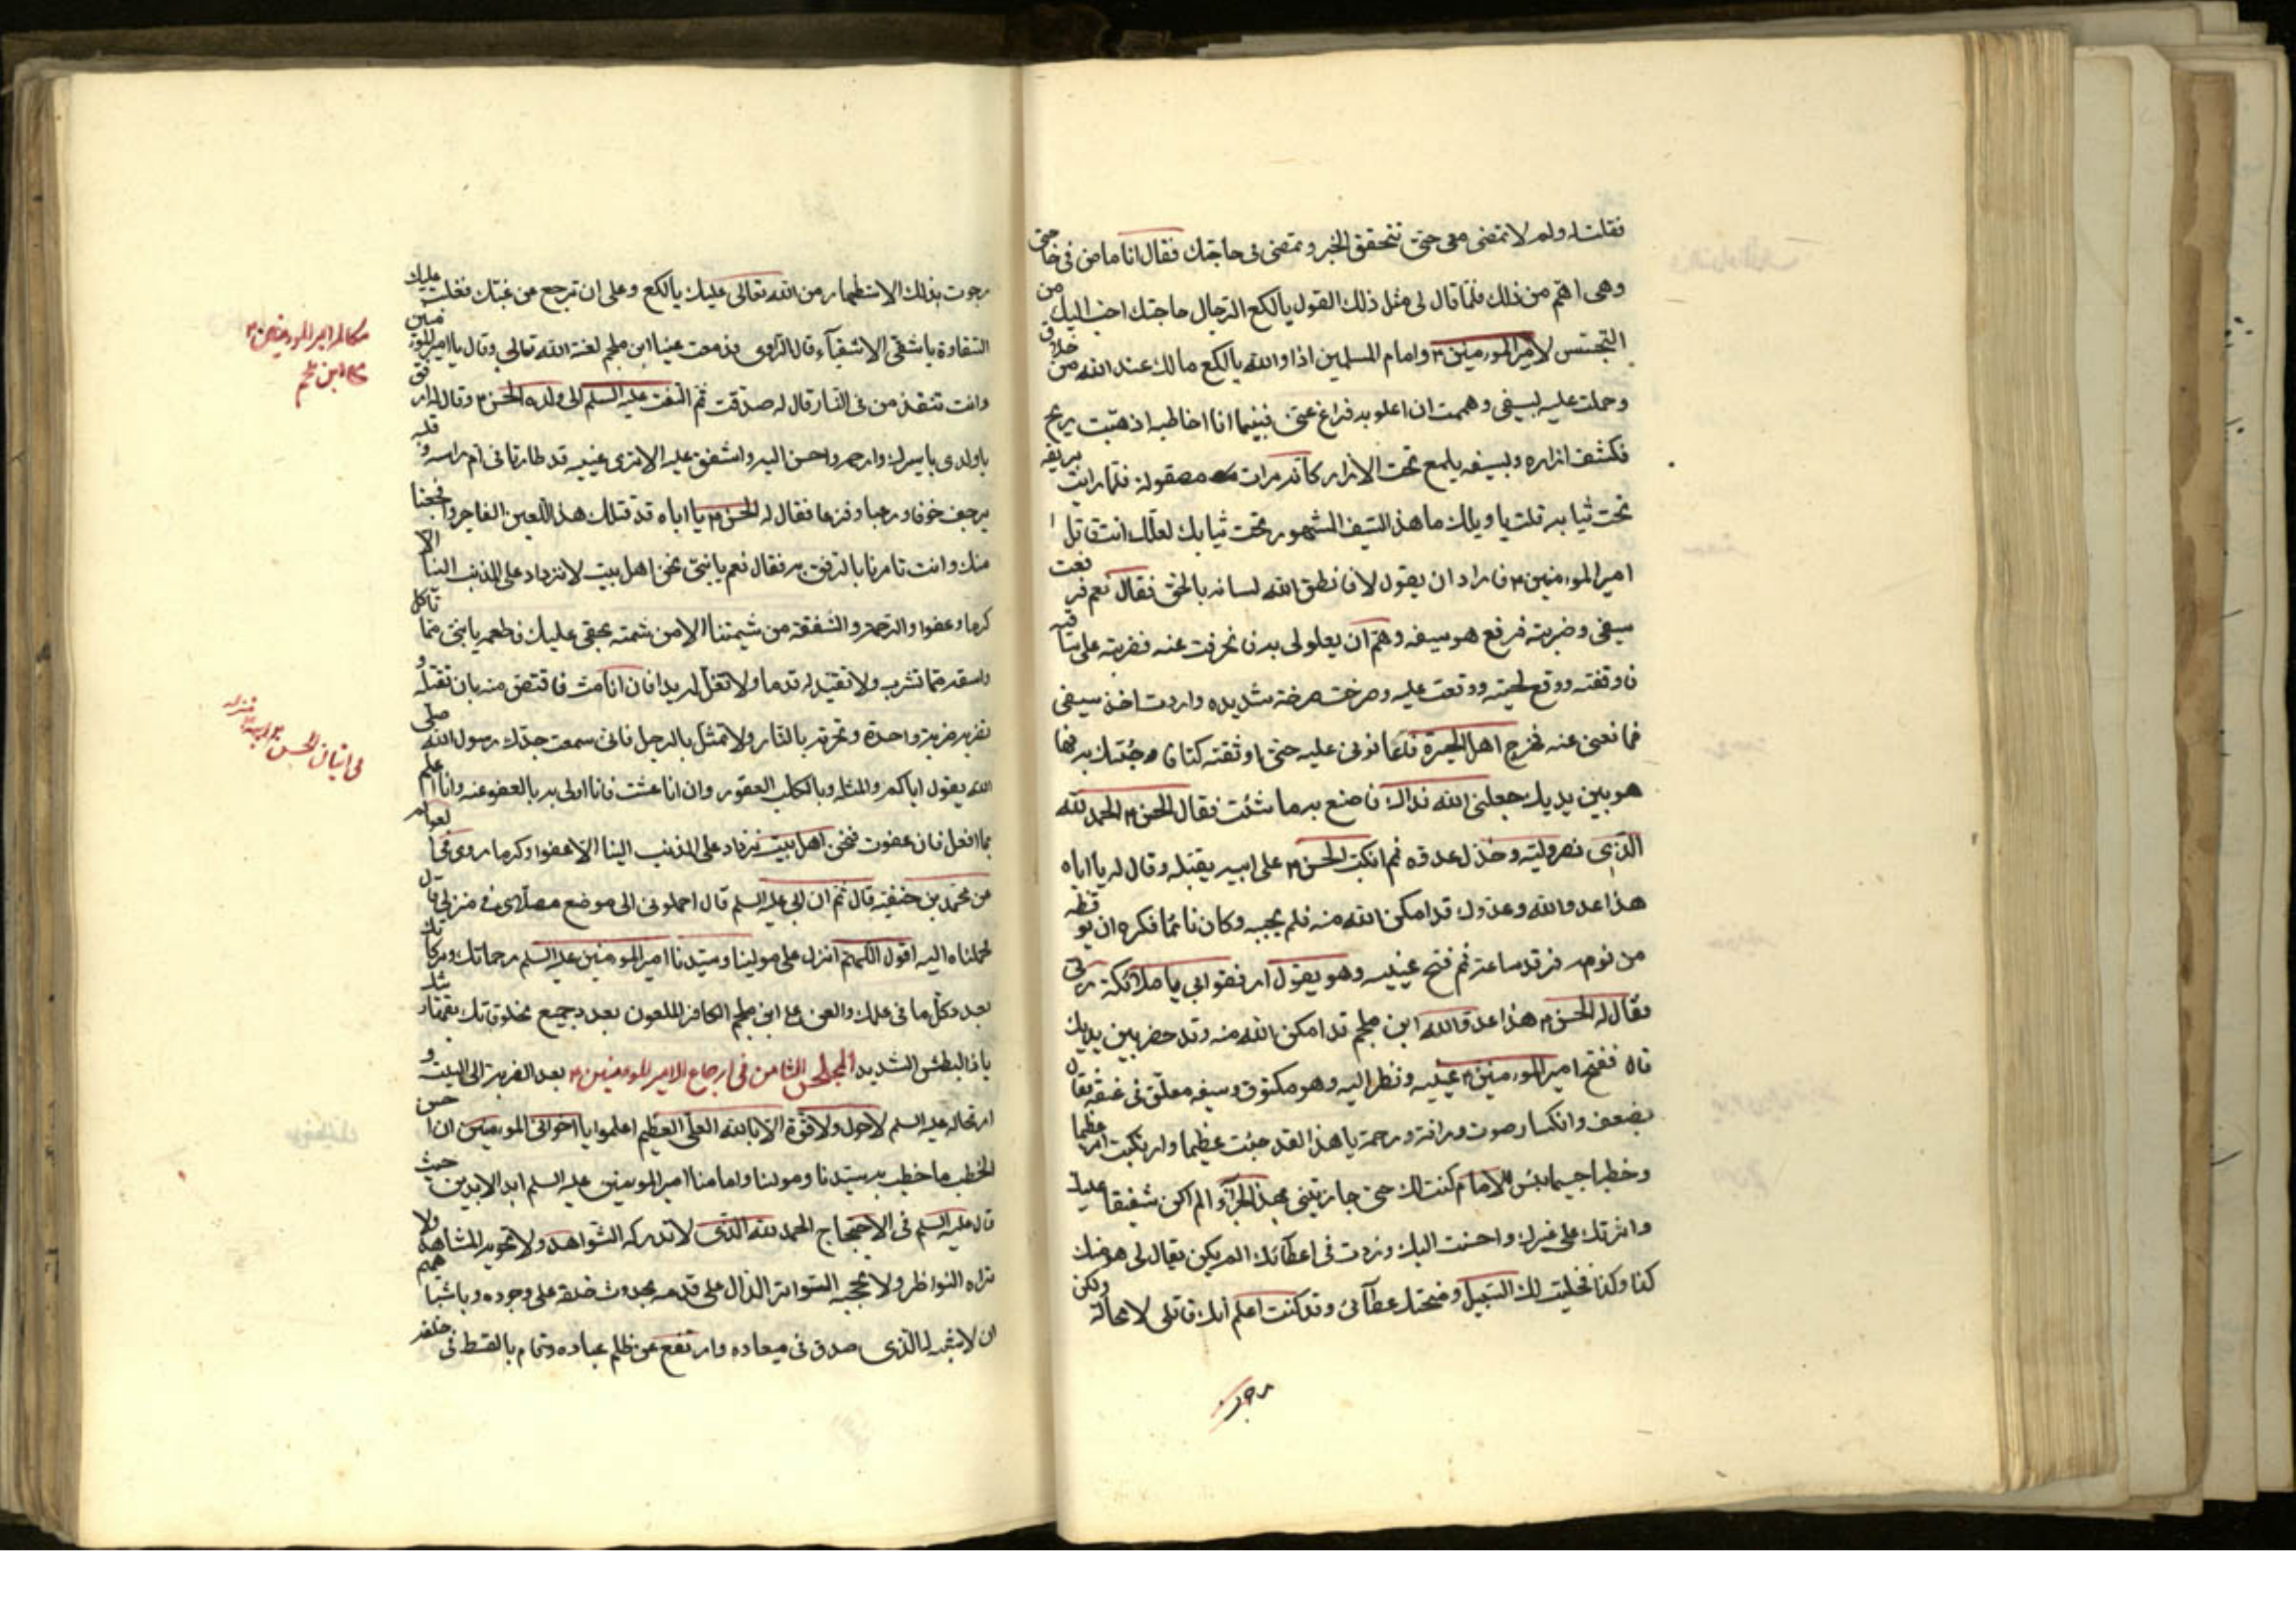 فقلت له ولم لا تمضى معى حتى نتحقق الخبر و تمضى فى حاجتك فقال انا ماض فى حاجتى
وهى اهم من ذلك فلمّا قال لى مثل ذلك القول يا لكع الرجال حاجتك احب اليك من
التجسس لامير المومنين ٤ وامام المسلمين اذا والله يا لكع مالك عند الله من خلاق
وحملت عليه بسيفى وهممت ان اعلو به فراغ عنى فبينما انا اخاطبه اذ هبّت ريح
فكشفت ازاره وبسيفه يلمع تحت الازار كانّه مرات مصقولة فلما رايت بريقه
تحت ثيابه قلت يا ويلك ما هذا السيف المشهور تحت ثيابك لعلّك انت قاتل
امير المومنين ٤ فاراد ان يقول لا فانطق الله لسانه بالحق فقال نعم فرفعت
سيفى وضربته فرفع هو سيفه وهمّ ان يعلولى به فانحرفت عنه فضربته على ساقيه
فاوقفته ووقع لحينه ووقعت عليه وصرخت صرخة شديده واردت اخذ سيفى
فمانعنى عنه فخرج اهل الحيرة فاعانونى عليه حتى اوثقته كتافا وجئتك به فها
هو بين يديك جعلنى الله فداك فاصنع به ما شئت فقال الحسن ٤ الحمد لله
الذى نصر وليّه وخذل عدوّه ثم انكبّ الحسن ٤ على ابيه يقبّله وقال له يا اباه
هذا عدو الله وعدوك قد امكن الله منه فلم يجبه وكان نائما فكره ان يوقظه
من نومه فرقد ساعة ثم فتح عينيه وهو يقول ارفقوا بى يا ملائكة ربّى
فقال له الحسن ٤ هذا عدو الله ابن ملجم قد امكن الله منه وقد حضر بين يديك
قال ففتح امير المومنين ٤ عينيه ونظر اليه وهو مكتوف وسيفه معلّق فى عنقه فقال
بضعف وانكسار صوت ورافة ورحمة يا هذا لقد جئت عظيما وارتكبت امرا عظيما
وخطبا جسيما بئس الامام كنت لك حتى جازيتنى بهذا الجزاء الم اكن شفيقا عليك
واثرتك على غيرك واحسنت اليك وزدت فى اعطائك الم يكن يقال لى فيك
كذا وكذا فخليت لك السبيل ومنحتك عطائى وقد كنت اعلم انك قاتلى لا محالة ولكن
رجوت
رجوت بذلك الاستظهار من الله تعالى عليك يا لكع وعلى ان ترجع عن غيّك فغلبت عليك
الشقاوة يا شقى الاشقيآء قال الراوى فدمعت عينا ابن ملجم لعنة الله تعالى وقال يا امير المومنين
وانت تنقذ من فى النار قال له صدقت ثم التفت عليه السلم الى ولده الحسن ٤ وقال له ارفق
يا ولدى باسيرك وارحمه واحسن اليه واشفق عليه الا ترى عينيه قد طارتا فى ام راسه وقلبه
يرجف خوفا ورعبا وفزعا فقال له الحسن ٤ يا اباه قد قتلك هذا اللعين الفاجر وافجعنا
منك وانت تامرنا بالرفق به فقال نعم يا بنىّ نحن اهل بيت لا نزداد على المذنب الينا الا
كرما وعفوا والرحمة والشفقة من شيمتنا لا من شيمته بحقى عليك فاطعمه يا بنىّ مما تاكل
واسقه مما تشرب ولا تقيّد له قدما ولا تغلّ له يدا فان انا متّ فاقتص منه بان تقتله و
تضربه ضربة واحدة وتحرقه بالنار ولا تمثّل بالرجل فانى سمعت جدّك رسول الله صلى
الله يقول اياكم والمثلة ولو بالكلب العقور وان انا عشت فانا اولى به بالعفو عنه وانا اعلم
بما افعل فان عفوت فنحن اهل بيت نزداد على المذنب الينا الا عفوا وكرما روى فى العوالم
عن محمّد بن حنفيّة قال ثم ان ابى عليه السلم قال احملونى الى موضع مصلّاى فى منزلى قال
فحملناه اليه اقول اللهم انزل على مولينا وسيّدنا امير المومنين عليه السلم رحماتك وبركاتك
بعدد كل ما فى علمك والعن على ابن ملجم الكافر الملعون بعدد جميع مخلوقاتك
يا ذا البطش الشديد المجلس الثامن فى ارجاع الامير المومنين ٤ بعد الضربة الى البيت و
ارتحاله عليه السلم لا حول ولا قوّة الّا بالله العلى العظيم اعلموا يا اخوانى المومنين ان احسن
الخطب ما خطب به سيّدنا ومولنا وامامنا امير المومنين عليه السلم ابد الابدين حيث
قال عليه السلم فى الاحتجاج الحمد لله الذى لا تدركه الشواهد ولا تحويه المشاهد ولا
تراه النواظر ولا تحجبه السواتر الدال على قدمه بحدوث خلقه على وجوده وباشتباههم
ان لا شبه له الذى صدق فى ميعاده وارتفع عن ظلم عباده وقام بالقسط فى خلقه
مكالمة امير المومنين ٤
مع ابن ملجم
فى اتيان الحسن